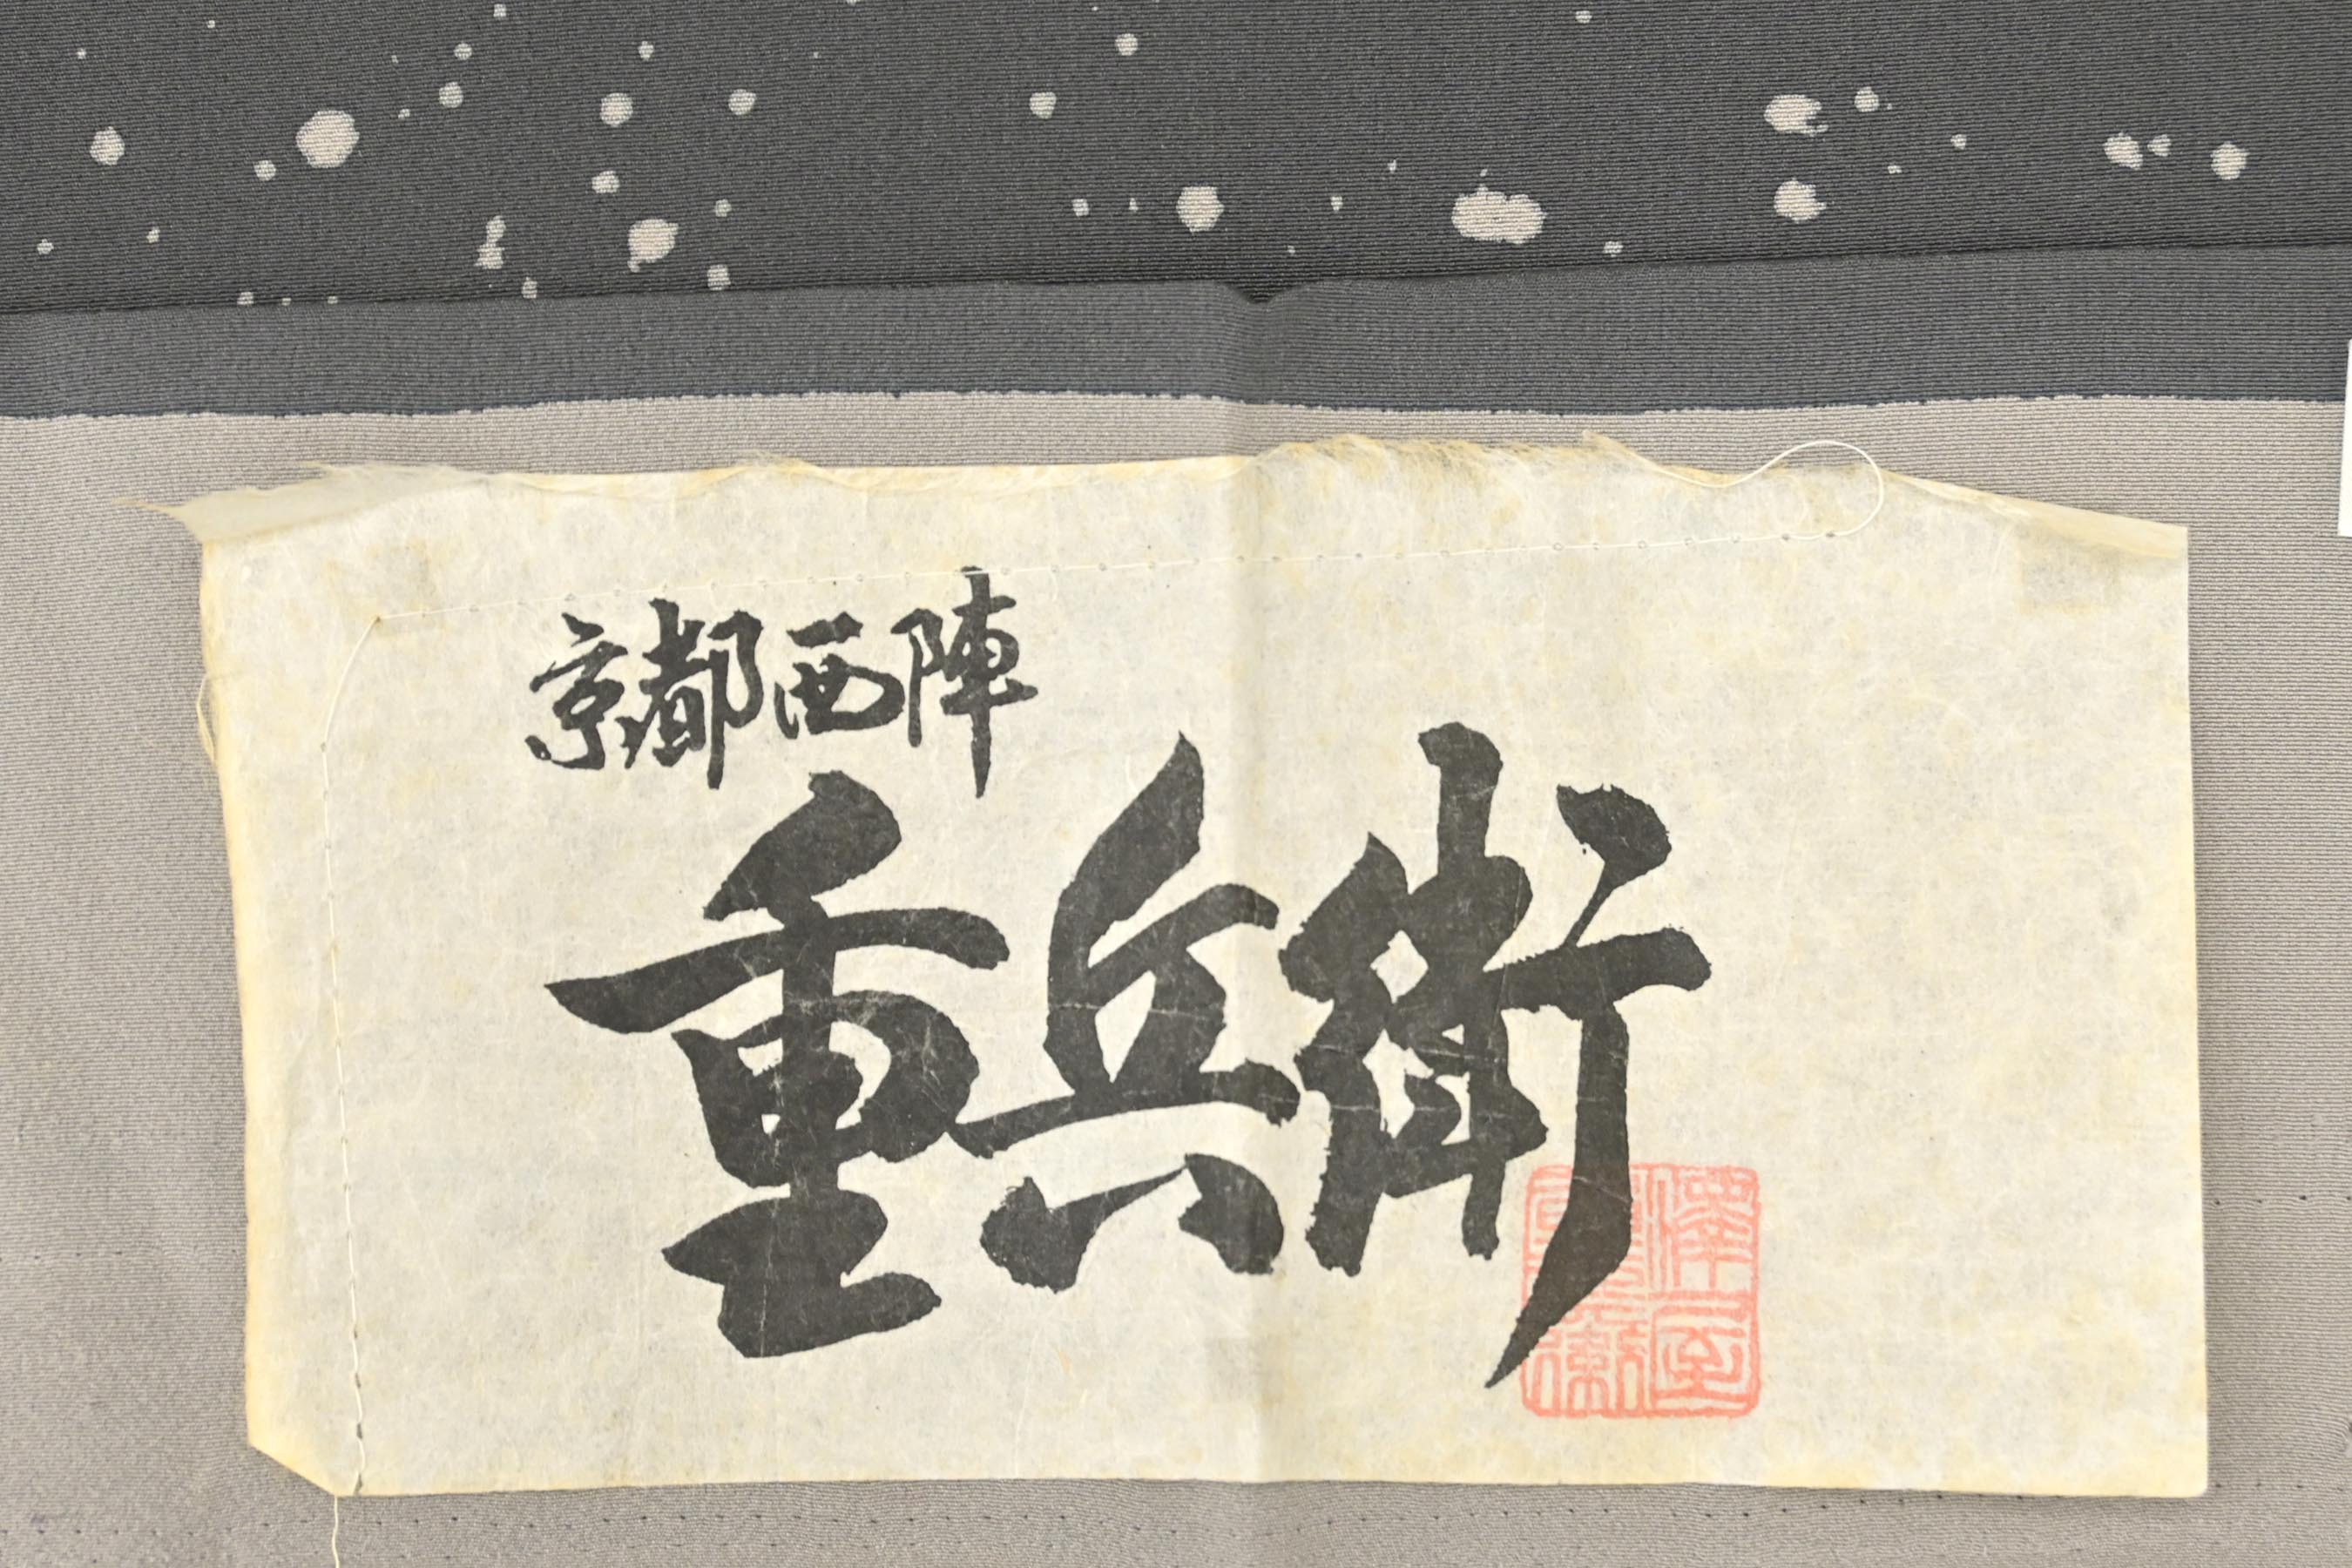 京都西陣
重兵衛